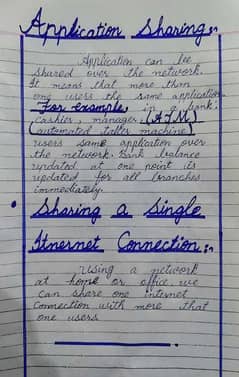 Application Sharing:-
Application can be
shared over the network.
It means that more than
one users the same application.
For example, in a bank:
cashier, manager, (ATM)
(automated taller machine)
users same application over
the network. Bank balance
updated at one point its
updated for all branches
immediately.
• Sharing a single
Itnernet Connection:-
Using a network
at home or office we
can share one internet
connection with more that
one users